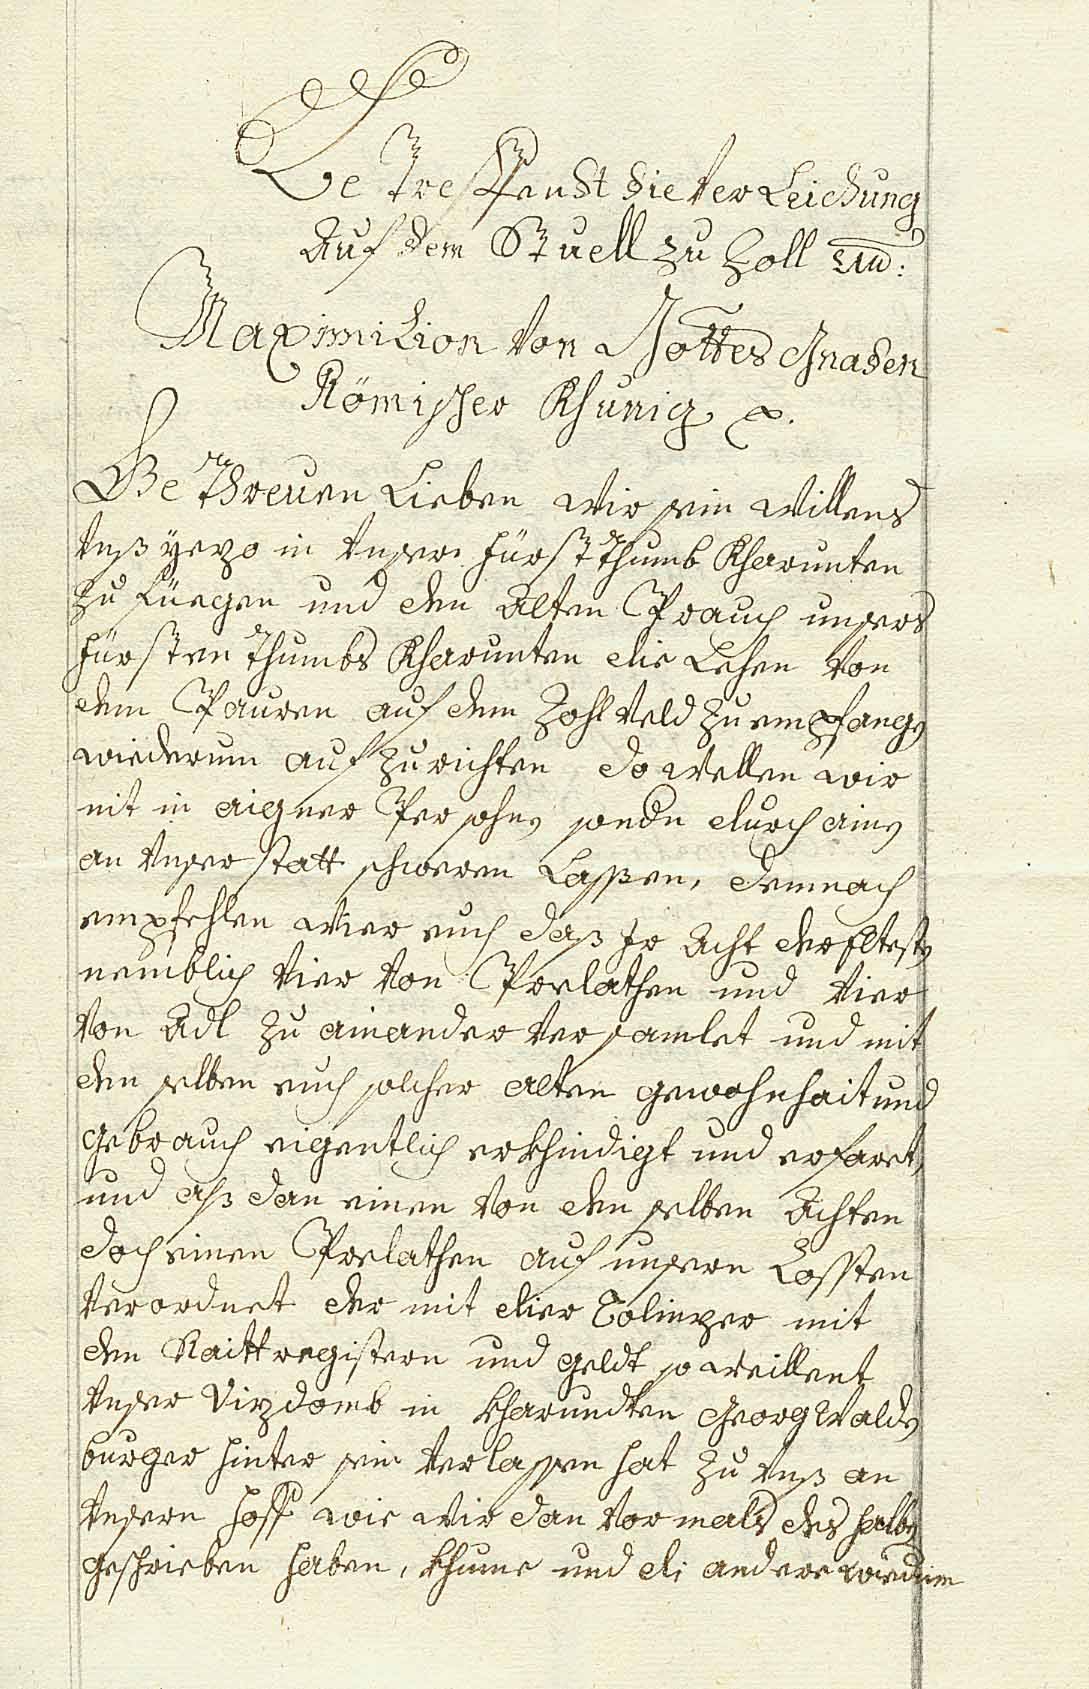 Betreffendt die Verleichung
Auf dem Stuell zu Zoll
Maximilion Von Gottes Gnaden
Römischer Khunig
Gethreuen Lieben wir sein willens
Vnß yezo in Vnser Fürstthumb Kharnnten
zu füegen und den Alten Prauch unsers
Fürstenthumbs Kharnnten die Lehen Von
dem Pauren auf dem Zohlveld zu empfang
wiederum aufzurichten do wellen wir
nit in aigner Persohn sondn durch ain
an Vnser statt schweren Lassen, demnach
empfehlen wier euch daß Jr Acht der Eltest
nemblich Vier Von Prelathen und Vier
Von Adl zu ainander Versamlet und mit
den selben euch solcher alten gewohnhait und
gebrauch eigentlich erkhindigt und erfaret,
und alß dan einen Von den selben Achten
doch einen Prelathen auf unsern Kossten
Verordnet der mit dier Colinzer mit
den Raittregistern und geldt so weillent
Vnser Vizdomb in Kharndten Georg Wald
burger hinter sein Verlassen hat zu Vnß an
Vnsern hoff wie wir dan Vormals des halb
geschrieben haben, khume und di andern wiedrim